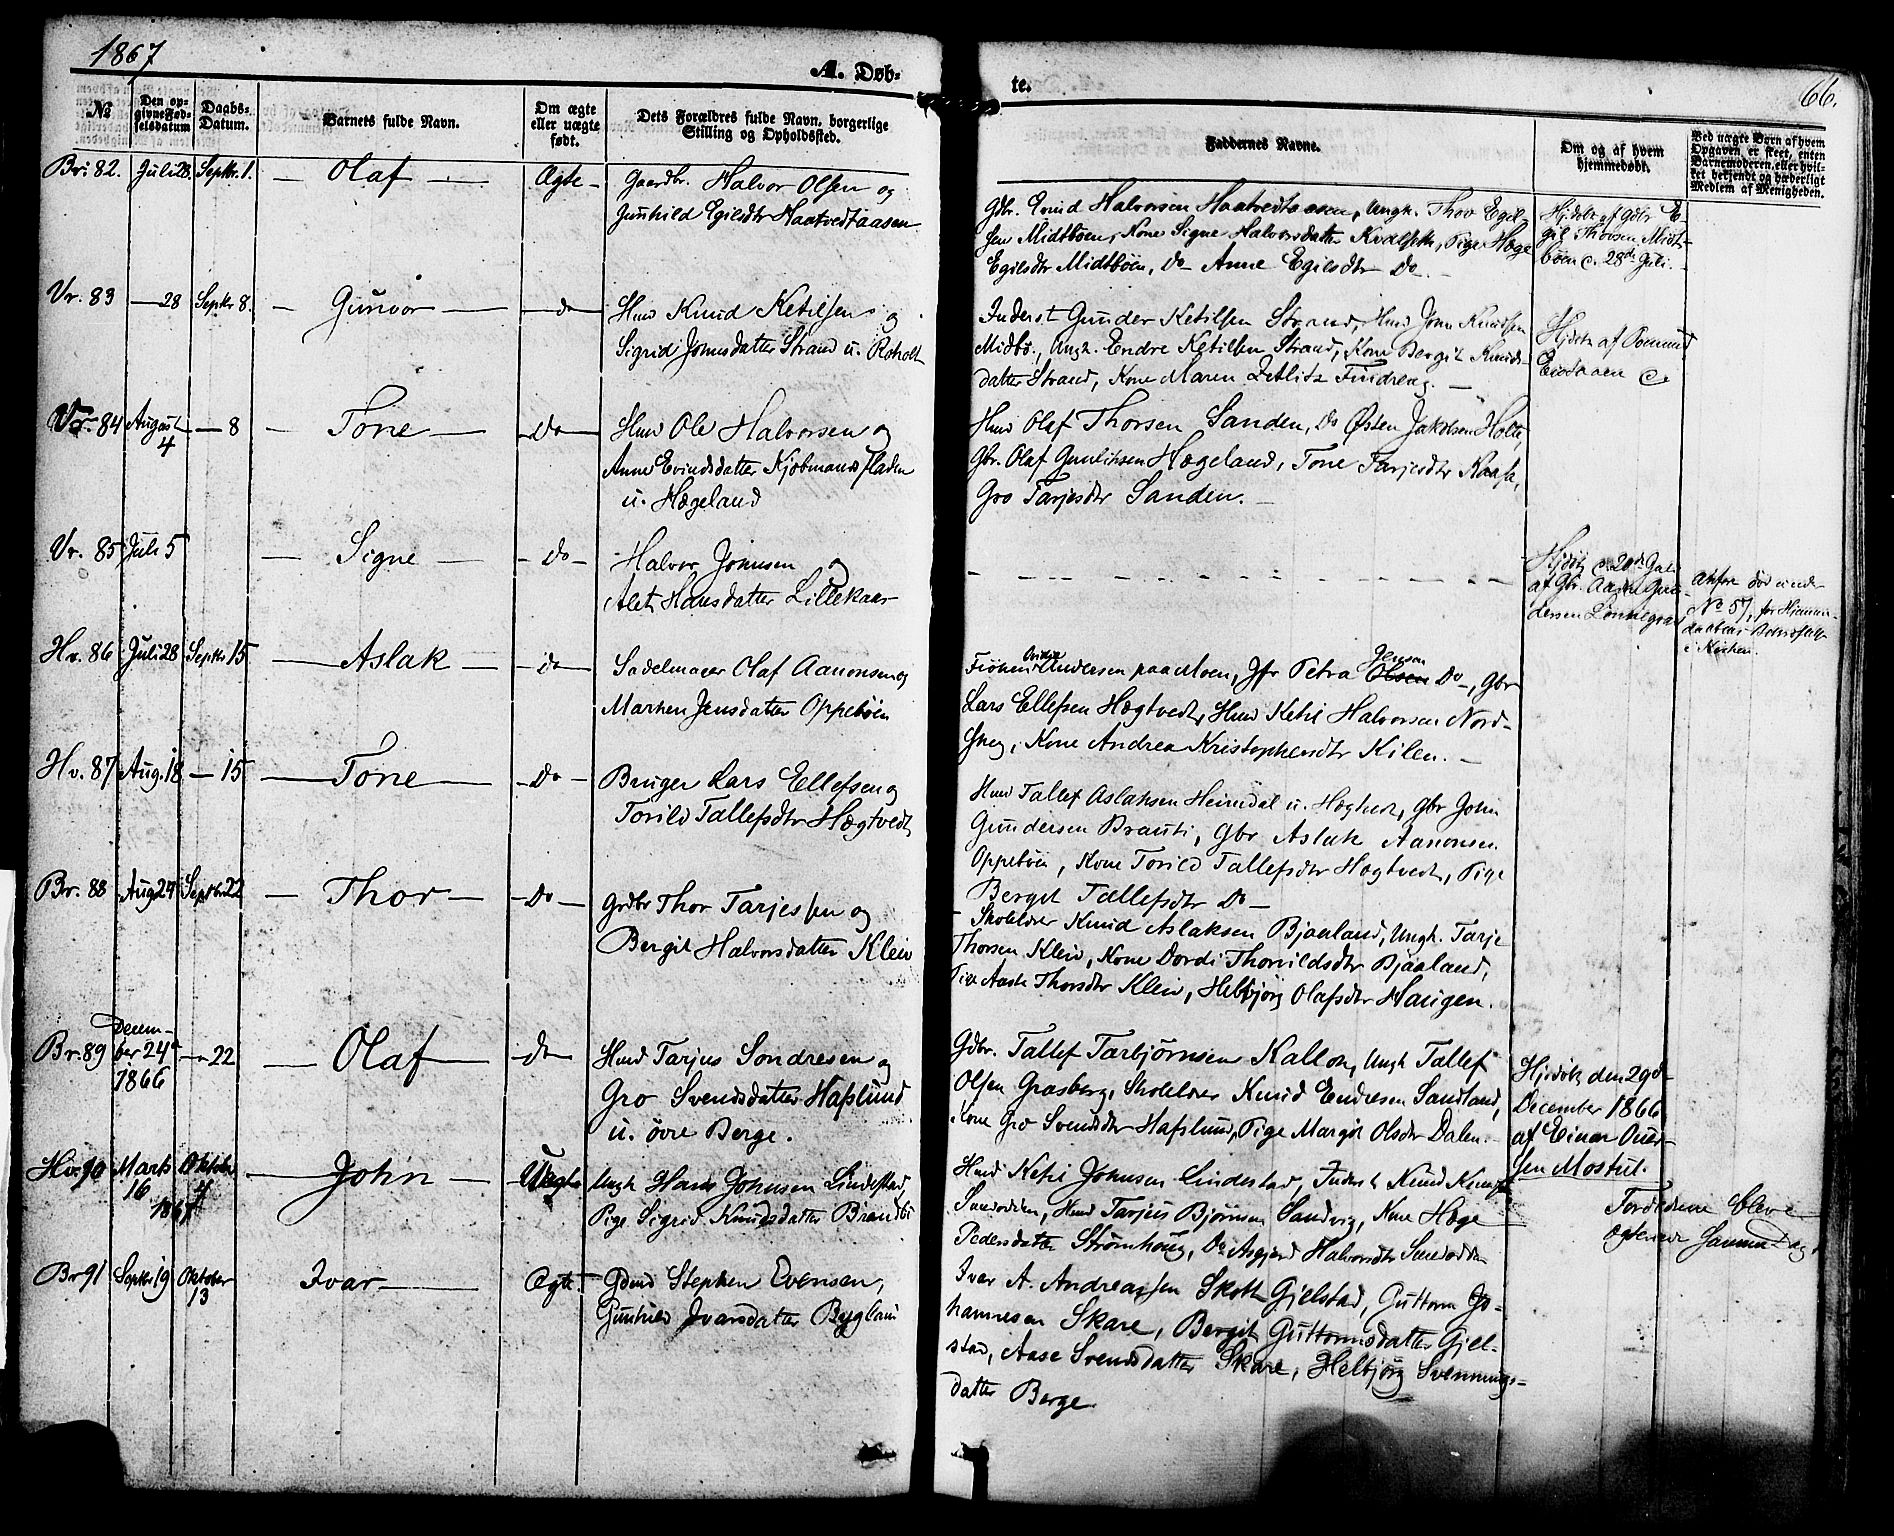 1867
A. Døb-
te.
66.
№
Den op-
givne Fød-
selsdatum
Daabs-
Datum.
Barnets fulde Navn.
Om ægte
eller uægte
født.
Dets Forældres fulde Navn, borgerlige
Stilling og Opholdssted.
Faddernes Navne.
Om og af hvem
hjemmedøbt.
Ved uægte Børn af hvem
Opgaven er skeet, enten
Barnemoderen eller hvil-
ket bekjendt og hæderligt
Medlem af Menigheden.
Br: 82. Juli 28. Septbr. 1. — Olaf — Ægte —
Gaardbr. Halvor Olsen og
Gunhild Egilsdtr Haatvedtaasen
Gdbr. Evind Halvorsen Haatvedtaasen, Ungk. Thov Egil-
sen Midtbøen, Kone Signe Halvorsdatter Kvalsett, Pige Hæge
Egilsdtr Midtbøen, Do Anne Egilsdtr Do. —
Hjdøbt af Gdbr E-
gil Thovsen Midt-
bøen d. 28de Juli.
Vr. 83 — 28 Septbr 8. — Gunvor — do
Hmd Knud Ketilsen og
Sigrid Johnsdatter Strand u. Roholt
Inderst Gunder Ketilsen Strand, Hmd John Knudsen
Midbø, Ungk. Endre Ketilsen Strand, Kone Bergit Knuds-
datter Strand, Kone Maren Zetlitz Findreng. —
Hjdøbt af
Vr. 84 August 4 — 8 — Tone — Do
Hmd Ole Halvorsen og
Anne Evindsdatter Kjøbmandspladen
u. Hægeland
Hmd Olaf Thorsen Sanden, Do Østen Jakobsen Holte,
Gbr. Olaf Gunliksen Hægeland, Tone Tarjesdtr Kaasa,
Gro Tarjesdtr Sanden. —
Vr. 85 Juli 5 — Signe — Do —
Halvor Johnsen og
Alet Hansdatter Lillekaas
Hjdøbt d. 20de Juli
af Gbr.
dersen Lønnegrav
anføre død under
No 57, for Hjemme-
daabens Bekræftelse
i Kirken.
Hv. 86 Juli 28 Septbr 15 — Aslak — Do
Sadelmager Olaf Aanonsen og
Marken Jensdatter Oppebøen
Andersen paa Moen, Jfr Petra Olsen Jensen Do —, Gbr
Lars Ellefsen Hægtvedt, Hmd Ketil Halvorsen Nord-
Kone Andrea Kristophersdtr Kilen. —
Hv. 87 Aug. 18 — 15 — Tone — Do —
Bruger Lars Ellefsen og
Torild Tallefsdtr Hægtvedt
Hmd Tallef Aslaksen Heimdal u. Hægtvedt, Gbr John
Gundersen Brauti, Gbr Aslak Aanonsen
Oppebøen, Kone Torild Tallefsdtr Hægtvedt, Pige
Bergit Tallefsdtr Do —
Br. 88 Aug 24 Septbr 22 — Thor — Do —
Grdbr Thor Tarjesen og
Bergit Halvorsdatter Kleiv
Skolelærer Knud Aslaksen Bjaaland, Ungk. Tarje
Thorsen Kleiv, Kone Dordi Thorvildsdtr Bjaaland,
Pige Aaste Thorsdtr Kleiv, Helbjørg Olafsdtr Haugen.
Br. 89 Decem-
ber 24de — 22 — Olaf — do
1866
Hmd Tarjus Sondresen og
Gro Svendsdatter Hafslund
u. øvre Berge.
Gdbr. Tallef Tarbjørnsen Kallok, Ungk Tallef
Olsen Grasberg, Skolelærer Knud Endresen Sandland,
Kone Gro Svendsdtr Hafslund, Pige Margit Olsdtr Dalen.
Hjdøbt den 29de
December 1866
af Einar Over-
sen Mostul.
Hv. 90 Marts 16 1867 Oktober 4 — John — Uægte
Ungk Hans Johnsen Lindestad,
Pige Sigrid Knudsdatter Brandbø
Hmd Ketil Johnsen Lindestad, Inderst Knud Knudsen
Sandodden, Hmd Tarjus Bjørnsen Sandvig, Kone Hæge
Pedersdatter Strømhoug, Do Asgjerd Halvorsdtr Sandodden
Forældrene bleve
ægteviede samme Dag
Br 91 Septbr 19 Oktober 13 Ivar — Ægte
Gdmd Stephen Evensen,
Gunhild Ivarsdatter Bygland
Ivar A. Andreassen Skott Gjelstad, Guttorm Jo-
hannesen Skare, Bergit Guttormsdatter Gjel-
stad, Aase Svendsdatter Skare, Helbjørg Svennungs-
datter Berge